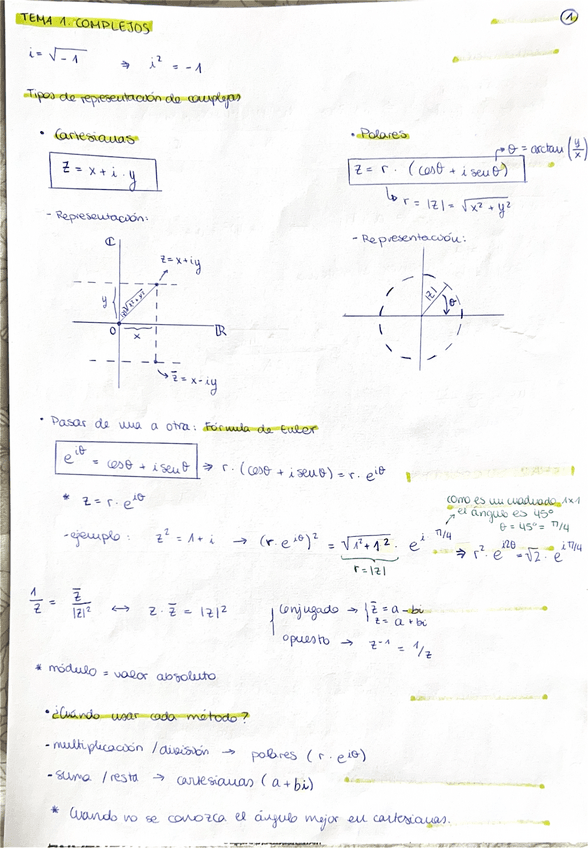 TEMA 1. COMPLEJOS
1
i = √-1 ⇒ i² = -1
Tipos de representación de complejos
• Cartesianas
z = x + i · y
- Representación:
ℂ
z = x + iy
y
|z| = √x²+y²
0
x
ℝ
z̄ = x - iy
• Polares
θ = arctan (y/x)
z = r · (cosθ + i senθ)
r = |z| = √x² + y²
- Representación:
|z|
θ
• Pasar de una a otra: Fórmula de Euler
e^iθ = cosθ + i senθ ⇒ r · (cosθ + i senθ) = r · e^iθ
* z = r · e^iθ
como es un cuadrado 1x1
el ángulo es 45°
θ = 45° = π/4
- ejemplo: z² = 1 + i → (r · e^iθ)² = √1² + 1² · e^i·π/4 ⇒ r² · e^i2θ = √2 · e^iπ/4
r = |z|
1/z = z̄/|z|² ↔ z · z̄ = |z|²
conjugado → { z̄ = a - bi
z = a + bi
opuesto → z⁻¹ = 1/z
* módulo = valor absoluto
• ¿Cuándo usar cada método?
- multiplicación / división → polares (r · e^iθ)
- suma / resta → cartesianas (a + bi)
* Cuando no se conozca el ángulo mejor en cartesianas.